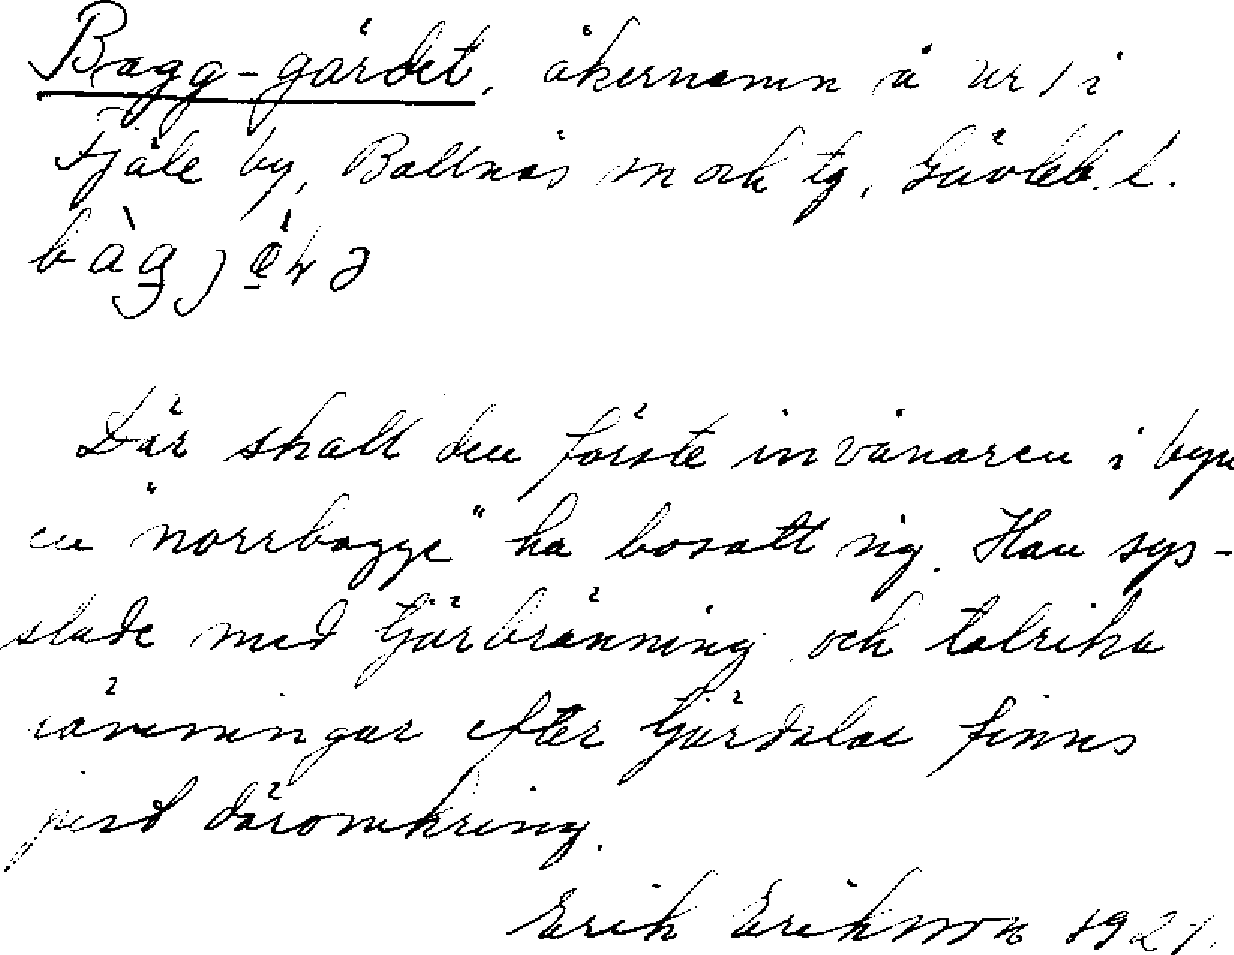 Bagg-gärdet, åkernamn å nr 1 i
Fjäle by, Bollnäs sn och tg, Gävleb. l.
Där skall den förste invånaren i byn
en "norrbagge" ha bosatt sig. Han sys-
slade med tjärbränning och talrika
lämningar efter tjärdalar finns
just däromkring.
Erik Eriksson 1921.